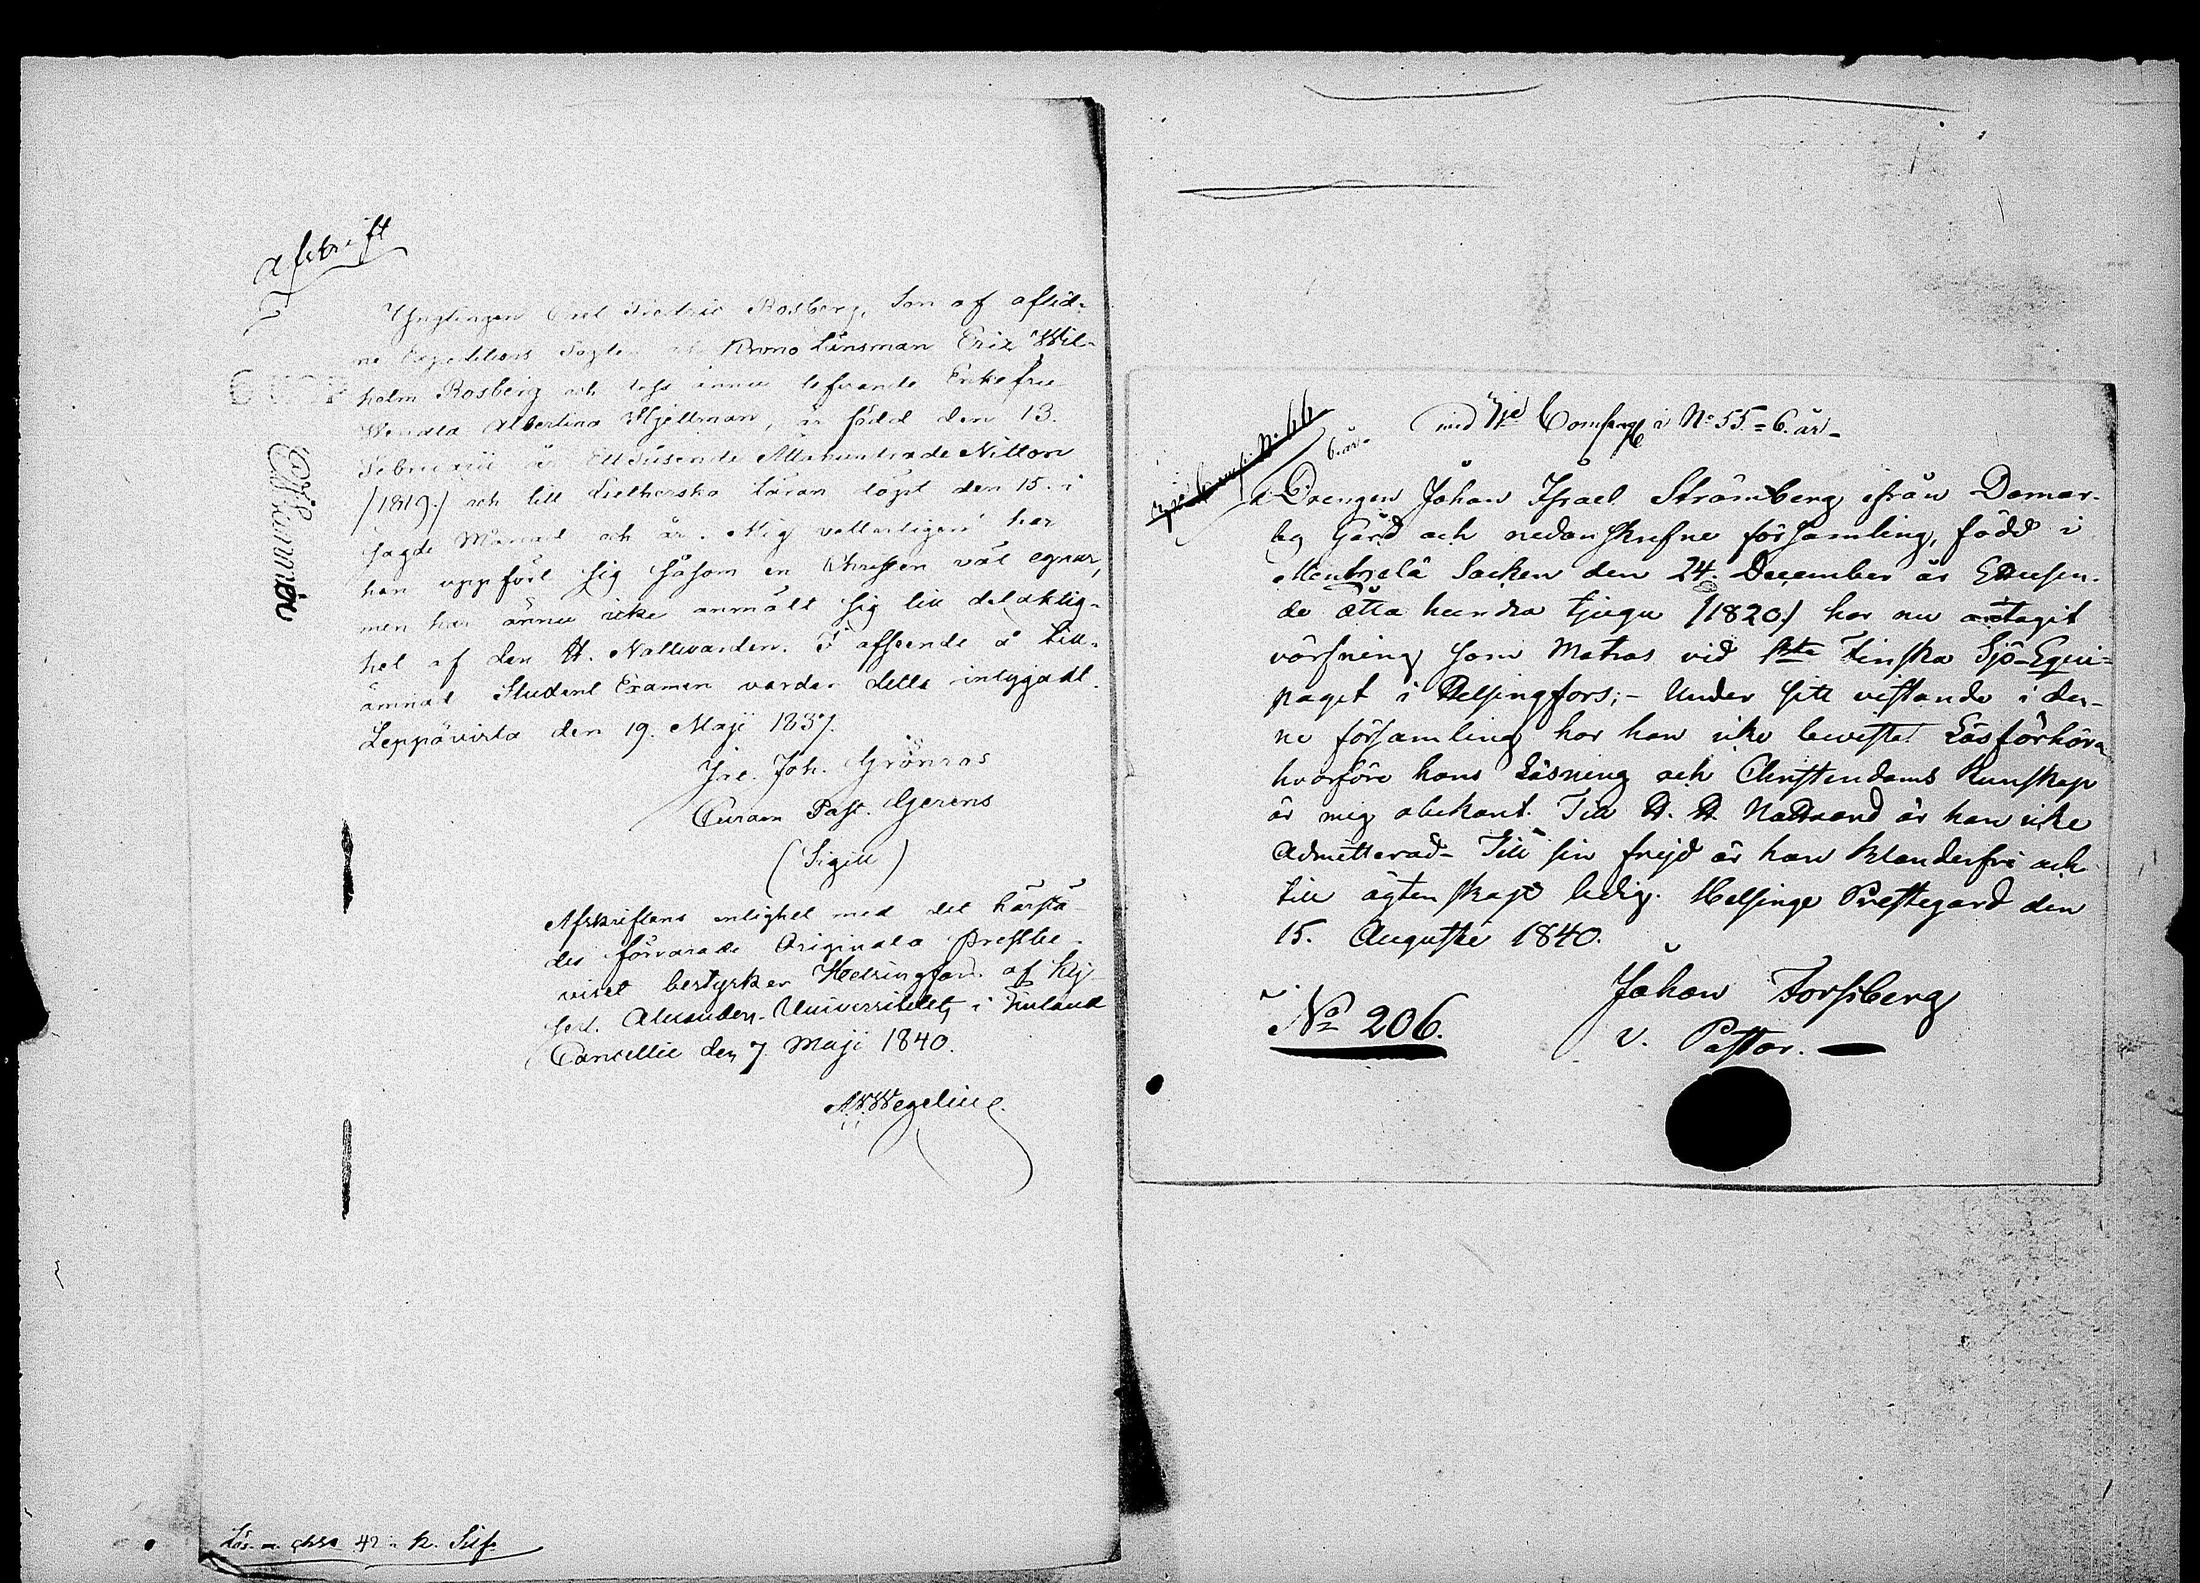 Afskrift
Ynglingen Fredric Rosberg, Son af aflid-
ne Expeditions Fogden och Krono Länsman Eric Wil-
helm Rosberg och dess ännu lefvande Enkefru
Wendla Albertina Hjellman, är född den 13.
Februarii år Ett Tusende Åttahundrade Nitton
/1819./ och till Lutherska Läran döpt den 15. i
sagde Månad och år. Mig vetterligen har
han uppfört sig såsom en Christen väl egnar,
men har ännu icke anmält sig till delaktig-
het af den H. Nattvarden. I afseende å till-
ämnad Student Examen varder detta intygadt.
Leppävirta den 19. Maji 1837.
Joh. Grönroos
Curam Past. Gerens
(Sigill)
Afskriftens enlighet med det härstä-
des förvarade Originala Prestbe-
viset bestyrker Helsingfors af Kej
serl. Alexanders-Universitetet i Finland
Cansellie den 7 Maji 1840.
A. W. Wegelius.
Lös. 42 k. Silf.
vid 7de Compagt i No 55 = 6. år-
No 66
6. år-
Drengen Johan Israel Strömberg ifrån Domar-
by Gård och nedanskrefne församling, född i
Mentzelä Socken den 24. December år Ettusen-
de åtta hundra tjugu /1820./ har nu antagit
värfning som Matros vid 1sta Finska Sjö-Equi-
paget i Helsingfors; - Under sitt vistande i den-
ne församling har han icke bevistat Läsförhör
hvarföre hans Läsning och Christendoms Kunskap
är mig obekant. Till H. H. Nattvard är han icke
Admitterad - Till sin frejd är han Klanderfri och
till ägtenskap ledig. Helsinge Prestegård den
15. Augusti 1840.
Johan Forsberg
v. Pastor.
No 206.